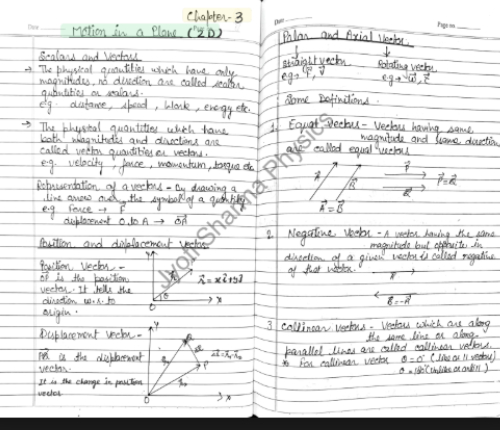 Chapter-3
Motion in a Plane (2D)
Date
Scalars and Vectors
→ The physical quantities which have only
magnitudes, no direction are called scalar
quantities or scalars.
e.g. distance, speed, work, energy etc.
→ The physical quantities which have
both magnitudes and directions are
called vector quantities or vectors.
e.g. velocity, force, momentum, torque etc
Representation of a vectors - By drawing a
line arrow over the symbol of a quantity
e.g force → F
displacement O to A → OA
Position and displacement Vector
Position Vector -
OP is the position
vector. It tells the
direction w.r. to
origin.
Y
X
O
Displacement Vector -
PR is the displacement
vector.
It is the change in position
vector
Y
R
P
O
X
Date
Page no
Polar and Axial Vector
Straight vector
Rotating vector
Some Definitions -
1. Equal Vectors - Vectors having same
magnitude and same direction
are called equal vectors
A
B
A = B
P
Q
P = Q
2. Negative Vector - A vector having the same
magnitude but opposite in
direction of a given vector is called negative
of that vector.
A
B = -A
3. Collinear Vectors - Vectors which are along
the same line or along
parallel lines are called collinear vectors.
for collinear vector θ = 0°
Jyoti Sharma Physics